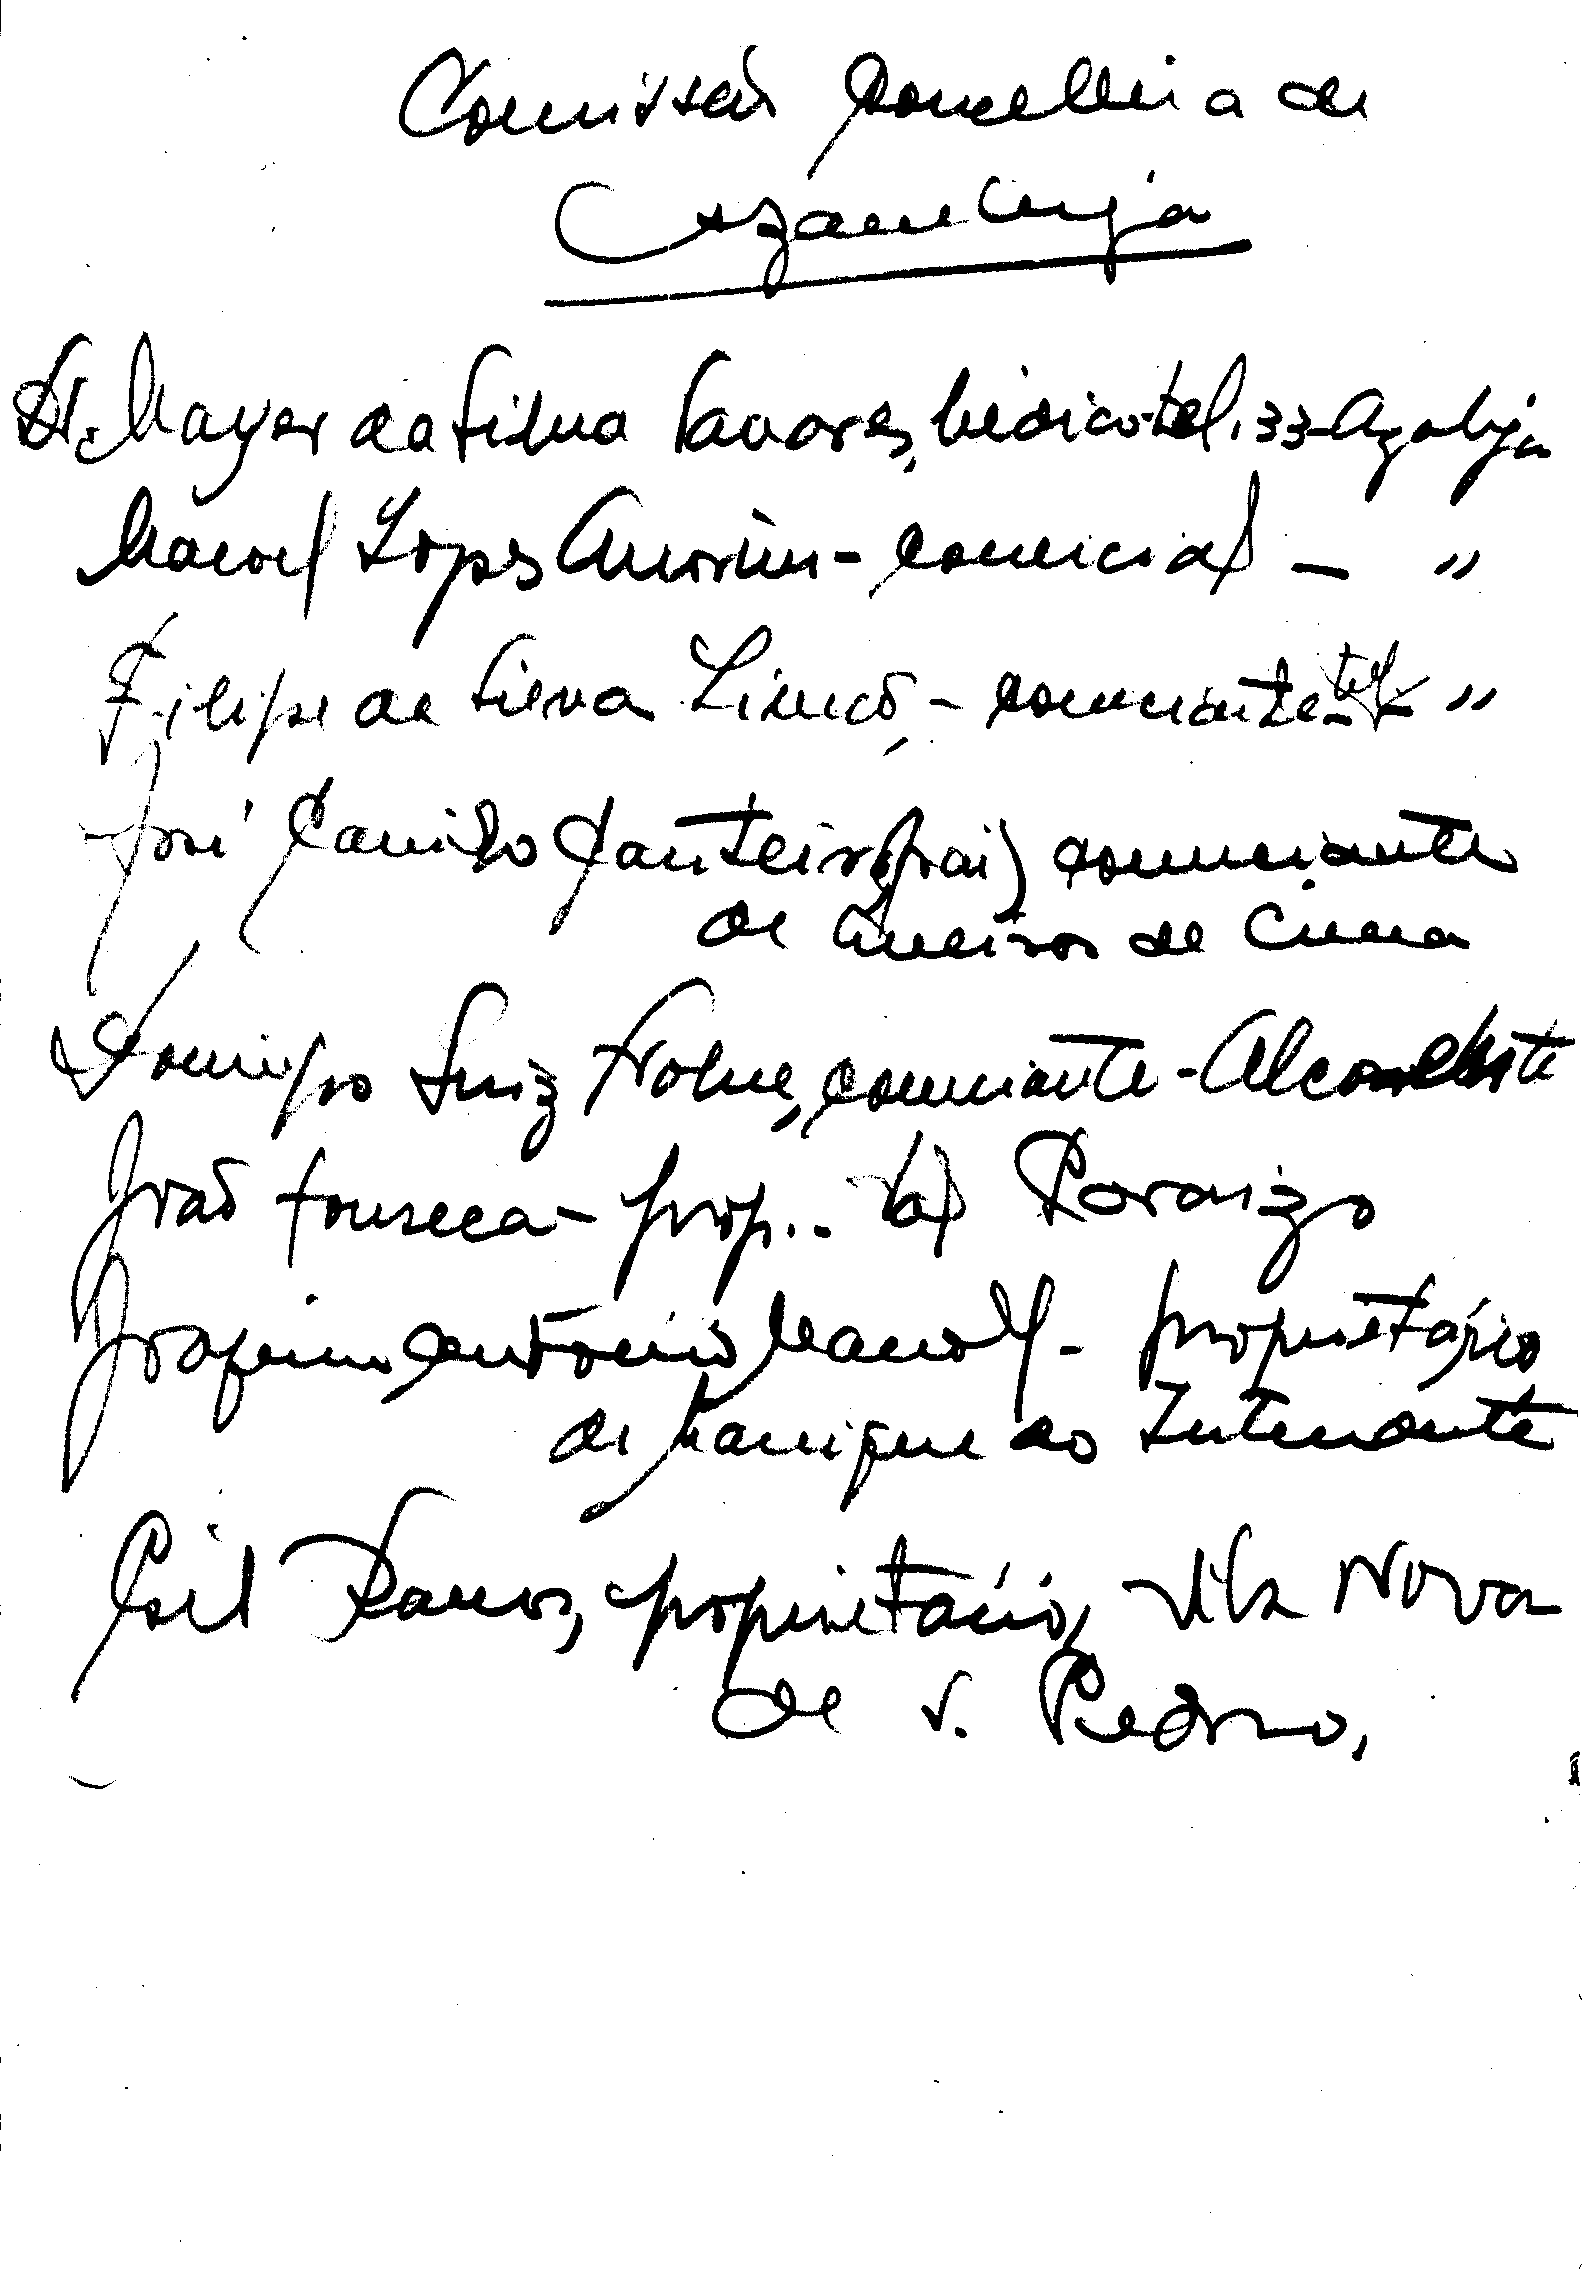 Comissão Concelhia de
Azambuja
Dr. Mayer da Silva Tavares, Médico-tel. 33-Azabuja
Manoel Lopes Amorim - comercial - "
Filipe da Silva - comerciante - tel - "
José Camilo Canteiro (pai) comerciante
de Aveiras de Cima
Domingos Luiz Nobre, comerciante - Alcoentre
João Fonseca - prop. - Val Paraizo
Joaquim António Manoel - proprietário
de Manique do Intendente
Gil Ramos, proprietário, Vila Nova
de S. Pedro,